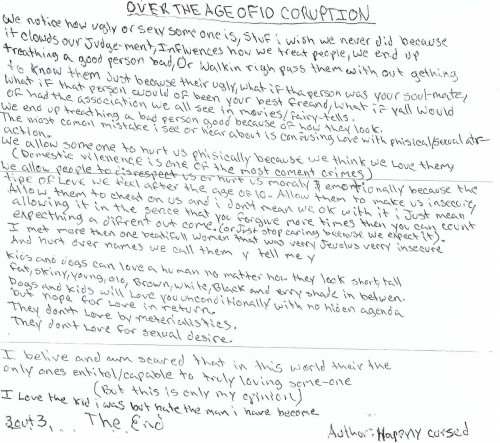 OVER THE AGE OF 10 CORUPTION
We notice how ugly or sexy someone is, stuf i wish we never did because
it clowds our Judge-ment, Influences how we treat people, we end up
treathing a good person bad, Or walkin righ pass them with out gething
to know them Just because their ugly, what if tha person was your soul-mate,
what if that person would of been your best freand, what if yall would
of had the association we all see in movies/fairy-tells.
We end up treathing a bad person good because of how they look.
The most comon mistake i see or hear about is confusing Love with phisical/sexual atr-
action.
We allow someone to hurt us phisically because we think we Love them,
(Domestic vilenence is one of the most coment crimes)
We allow people to disrespect us or hurt us moraly & emortionally because the
tipe of Love we feal after the age of 10. Allow them to make us insecure,
Allow them to cheat on us and i don't mean we ok with it i Just mean
allowing it in the sence that you forgive more times then you can count
expecthing a difrent out come. (or Just stop caring because we expect it).
I met more then one beatifull women that was verry Jevelus verry insecure
And hurt over names we call them & tell me y
Kids and dogs can love a human no matter how they look short, tall
fat, skiny, young, old, Brown, white, Black and evry shade in betwen.
Dogs and kids will Love you unconditionally with no hiden agenda
but hope for Love in return.
They don't Love by meterialistics.
They don't Love for sexual desire.
I belive and am scared that in this world their the
only ones entitol/capable to truly loving some-one
(But this is only my opinion)
I Love the kid i was but hate the man i have become
3 out 3, ... The End
Author: Happny cursed